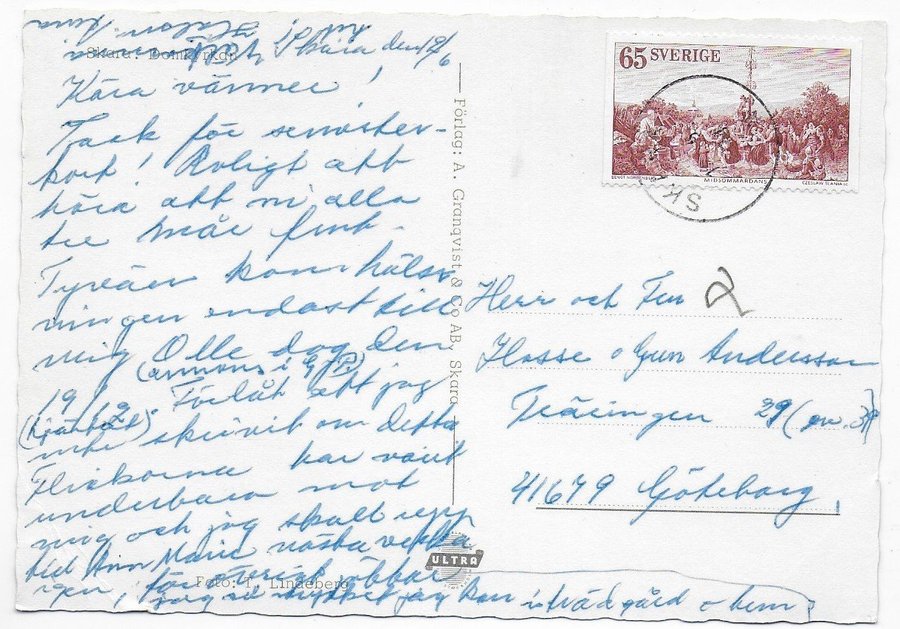 Skara. Domkyrkan
Skara den 19/6
Kära vänner!
Tack för semester-
kort! Roligt att
höra att ni alla
tre mår fint.
Tyvärr kom häls-
ningen endast till
mig Olle dog den
(annons i G.P.)
19/2. Förlåt att jag
(hjärtat)
inte skrivit om detta
Flickorna har varit
underbara mot
mig och jag skall upp
till Ann Marie nästa vecka
igen, för övrigt jobbar
jag så mycket jag kan i trädgård o hem
Förlag: A. Granqvist & Co AB, Skara
Foto: T. Lindeberg
ULTRA
65 SVERIGE
BENGT NORDENBERG
MIDSOMMARDANS
CZESLAW SLANIA SC
SK
Herr och Fru
Hasse o Gun Andersson
Träringen 29 (ov. 39)
41679 Göteborg